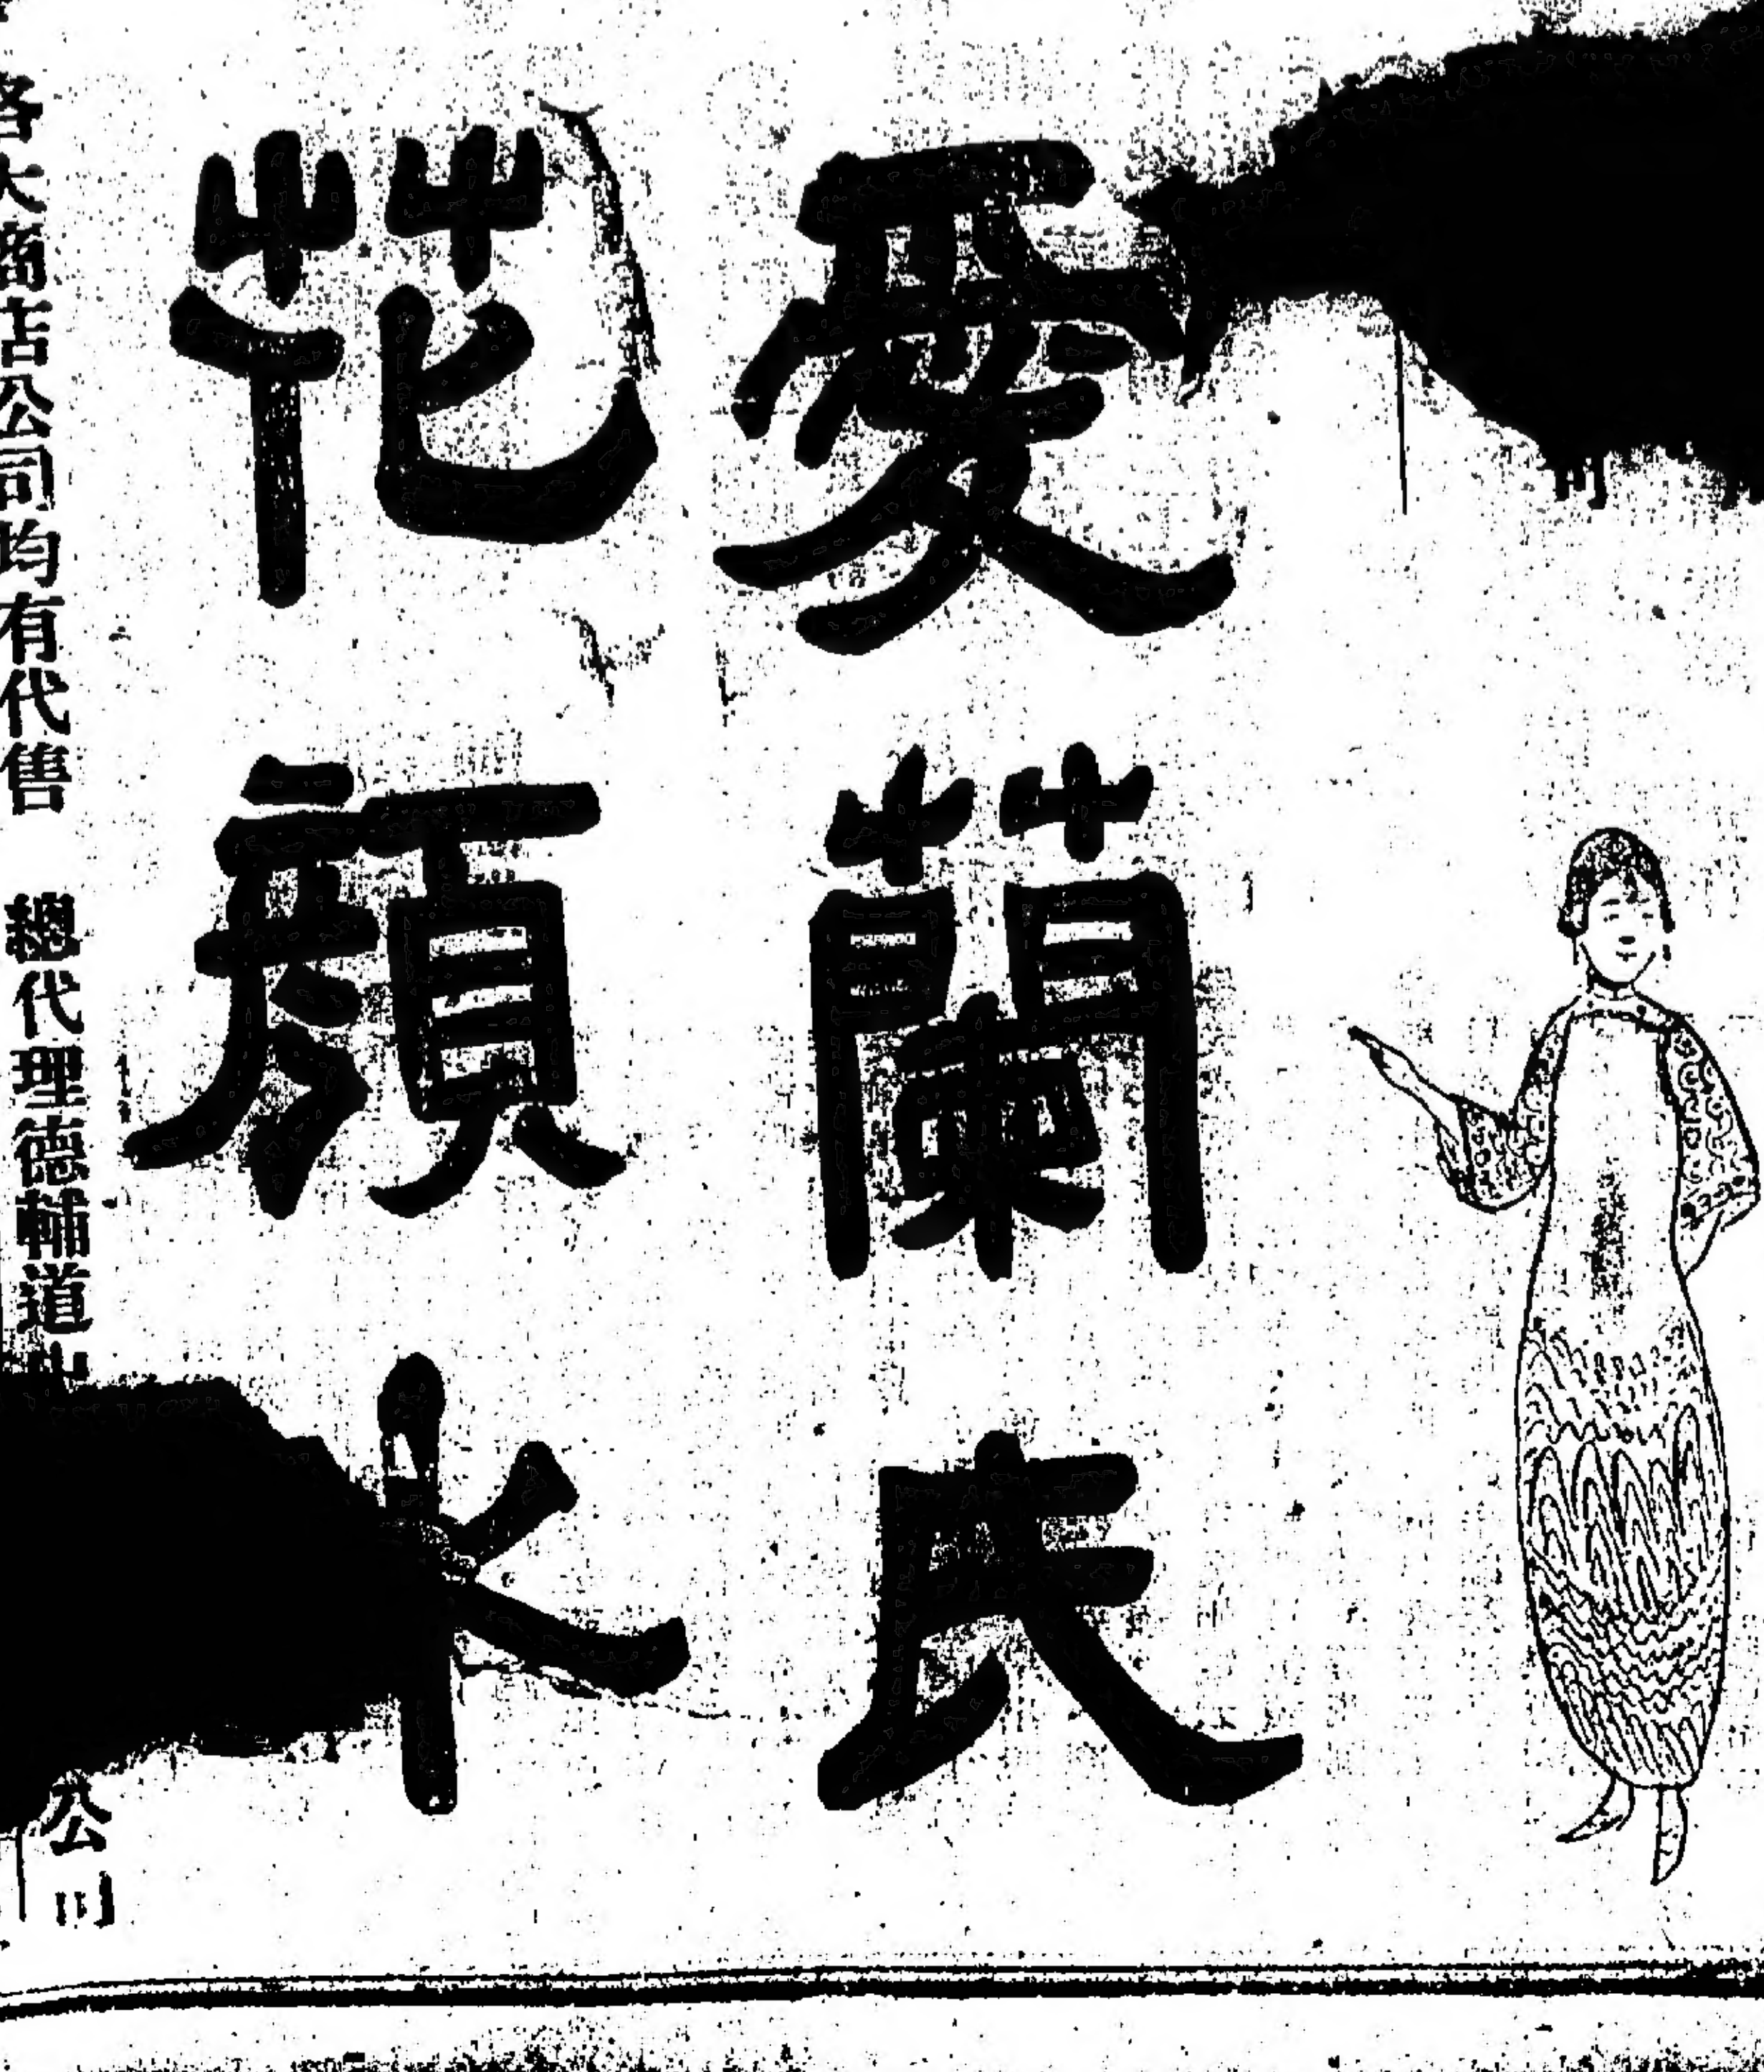 愛蘭氏
花顏水
各大商店公司均有代售 總代理德輔道
公司